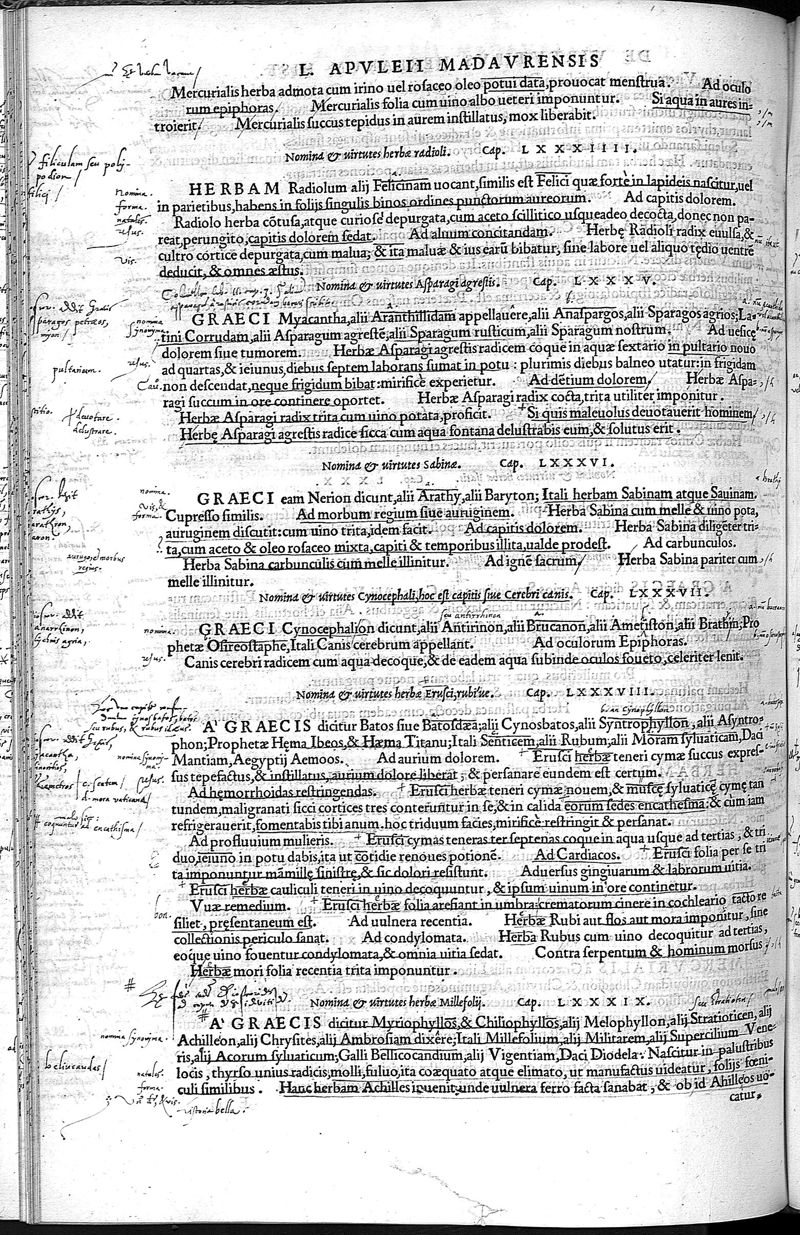 L. APVLEII MADAVRENSIS
Mercurialis herba admota cum irino uel rosaceo oleo potui data, prouocat menstrua. Ad oculo
rum epiphoras. Mercurialis folia cum uino albo ueteri imponuntur. Si aqua in aures in-
troierit. Mercurialis succus tepidus in aurem instillatus, mox liberabit.
Nomina & uirtutes herbæ radioli. Cap. LXXXIIII.
HERBAM Radiolum alij Felicinam uocant, similis est Felici quæ fortè in lapideis nascitur, uel
in parietibus, habens in folijs singulis binos ordines punctorum aureorum. Ad capitis dolorem.
Radiolo herba cõtusa, atque curiosè depurgata, cum aceto scillitico usqueadeo decocta, donec non pa-
reat, perungito, capitis dolorem sedat. Ad aluum concitandam. Herbę Radioli radix euulsa, &
cultro cortice depurgata, cum malua; & ita maluæ & ius earũ bibatur, sine labore uel aliquo tędio uentrẽ
deducit, & omnes æstus.
Nomina & uirtutes Asparagi agrestis. Cap. LXXXV.
GRAECI Myacantha, alij Aranthillidam appellauêre, alij Anaspargos, alij Sparagos agrios; La-
tini Corrudam, alij Asparagum agrestẽ, alij Sparagum rusticum, alij Sparagum nostrum. Ad uesicę
dolorem siue tumorem. Herbæ Asparagi agrestis radicem coque in aquæ sextario in pultario nouo
ad quartas, & ieiunus, diebus septem laborans sumat in potu: plurimis diebus balneo utatur: in frigidam
non descendat, neque frigidum bibat: mirificè experietur. Ad dẽtium dolorem. Herbæ Aspa-
ragi succum in ore continere oportet. Herbæ Asparagi radix cocta, trita utiliter imponitur.
Herbæ Asparagi radix trita cum uino potata, proficit. Si quis maleuolus deuotauerit hominem,
Herbę Asparagi agrestis radice sicca cum aqua fontana delustrabis eum, & solutus erit.
Nomina & uirtutes Sabinæ. Cap. LXXXVI.
GRAECI eam Nerion dicunt, alij Arathy, alij Baryton; Itali herbam Sabinam atque Sauinam,
Cupresso similis. Ad morbum regium siue auruginem. Herba Sabina cum melle & uino pota,
auruginem discutit: cum uino trita, idem facit. Ad capitis dolorem. Herba Sabina diligẽter tri-
ta, cum aceto & oleo rosaceo mixta, capiti & temporibus illita, ualde prodest. Ad carbunculos.
Herba Sabina carbunculis cum melle illinitur. Ad ignẽ sacrum. Herba Sabina pariter cum
melle illinitur.
Nomina & uirtutes Cynocephali, hoc est capitis siue Cerebri canis. Cap. LXXXVII.
GRAECI Cynocephalion dicunt, alij Antirinon, alij Brucanon, alij Ameriston, alij Brathin; Pro
phetæ Osireostaphe, Itali Canis cerebrum appellant. Ad oculorum Epiphoras.
Canis cerebri radicem cum aqua decoque, & de eadem aqua subinde oculos foueto, celeriter lenit.
Nomina & uirtutes herbæ Erusci, rubi'ue. Cap. LXXXVIII.
A' GRAECIS dicitur Batos siue Batosdæa; alij Cynosbatos, alij Syntrophyllon, alij Asyntro-
phon; Prophetæ Hęma Ibeos, & Hæma Titanu; Itali Senticem, alij Rubum, alij Moram syluaticam, Daci
Mantiam, Aegyptij Aemoos. Ad aurium dolorem. Erusci herbæ teneri cymæ succus expres-
sus tepefactus, & instillatus, aurium dolore liberat; & persanare eundem est certum.
Ad hęmorrhoidas restringendas. Erusci herbæ teneri cymæ nouem, & muscę syluaticę cymę tan
tundem, maligranati sicci cortices tres conteruntur in se, & in calida eorum sedes encathesma: & cum iam
refrigerauerit, fomentabis tibi anum. hoc triduum facies, mirificè restringit & persanat.
Ad profluuium mulieris. Erusci cymas teneras ter septenas coque in aqua usque ad tertias, & tri
duo, ieiuno in potu dabis, ita ut cotidie renoues potionẽ. Ad Cardiacos. Erusci folia per se tri
ta imponuntur mamillę sinistrę, & sic dolori resistunt. Aduersus gingiuarum & labrorum uitia.
Erusci herbæ cauliculi teneri in uino decoquuntur, & ipsum uinum in ore continetur.
Vuæ remedium. Erusci herbæ folia arefiant in umbra: crematorum cinere in cochleario tacto re
siliet, pręsentaneum est. Ad uulnera recentia. Herbæ Rubi aut flos aut mora imponitur, sine
collectionis periculo sanat. Ad condylomata. Herba Rubus cum uino decoquitur ad tertias,
eoque uino fouentur condylomata, & omnia uitia sedat. Contra serpentum & hominum morsus
Herbæ mori folia recentia trita imponuntur.
Nomina & uirtutes herbæ Millefolij. Cap. LXXXIX.
A' GRAECIS dicitur Myriophyllos, & Chiliophyllos, alij Melophyllon, alij Stratioticen, alij
Achilleon, alij Chrysites, alij Ambrosiam dixêre; Itali Millefolium, alij Militarem, alij Supercilium Vene-
ris, alij Acorum syluaticum; Galli Bellicocandium, alij Vigentiam, Daci Diodela. Nascitur in palustribus
locis, thyrso unius radicis, molli, fuluo, ita coæquato atque elimato, ut manufactus uideatur, folijs fœni-
culi similibus. Hanc herbam Achilles inuenit, unde uulnera ferro facta sanabat, & ob id Ahilleos uo-
catur.
filiculam seu poly-
podion
nomina.
forma.
natalis.
usus.
vis.
nomina
synonyma
pultarium.
usus.
deuotare.
delustrare.
nomina.
forma.
nomina.
usus.
usus.
natalis.
forma.